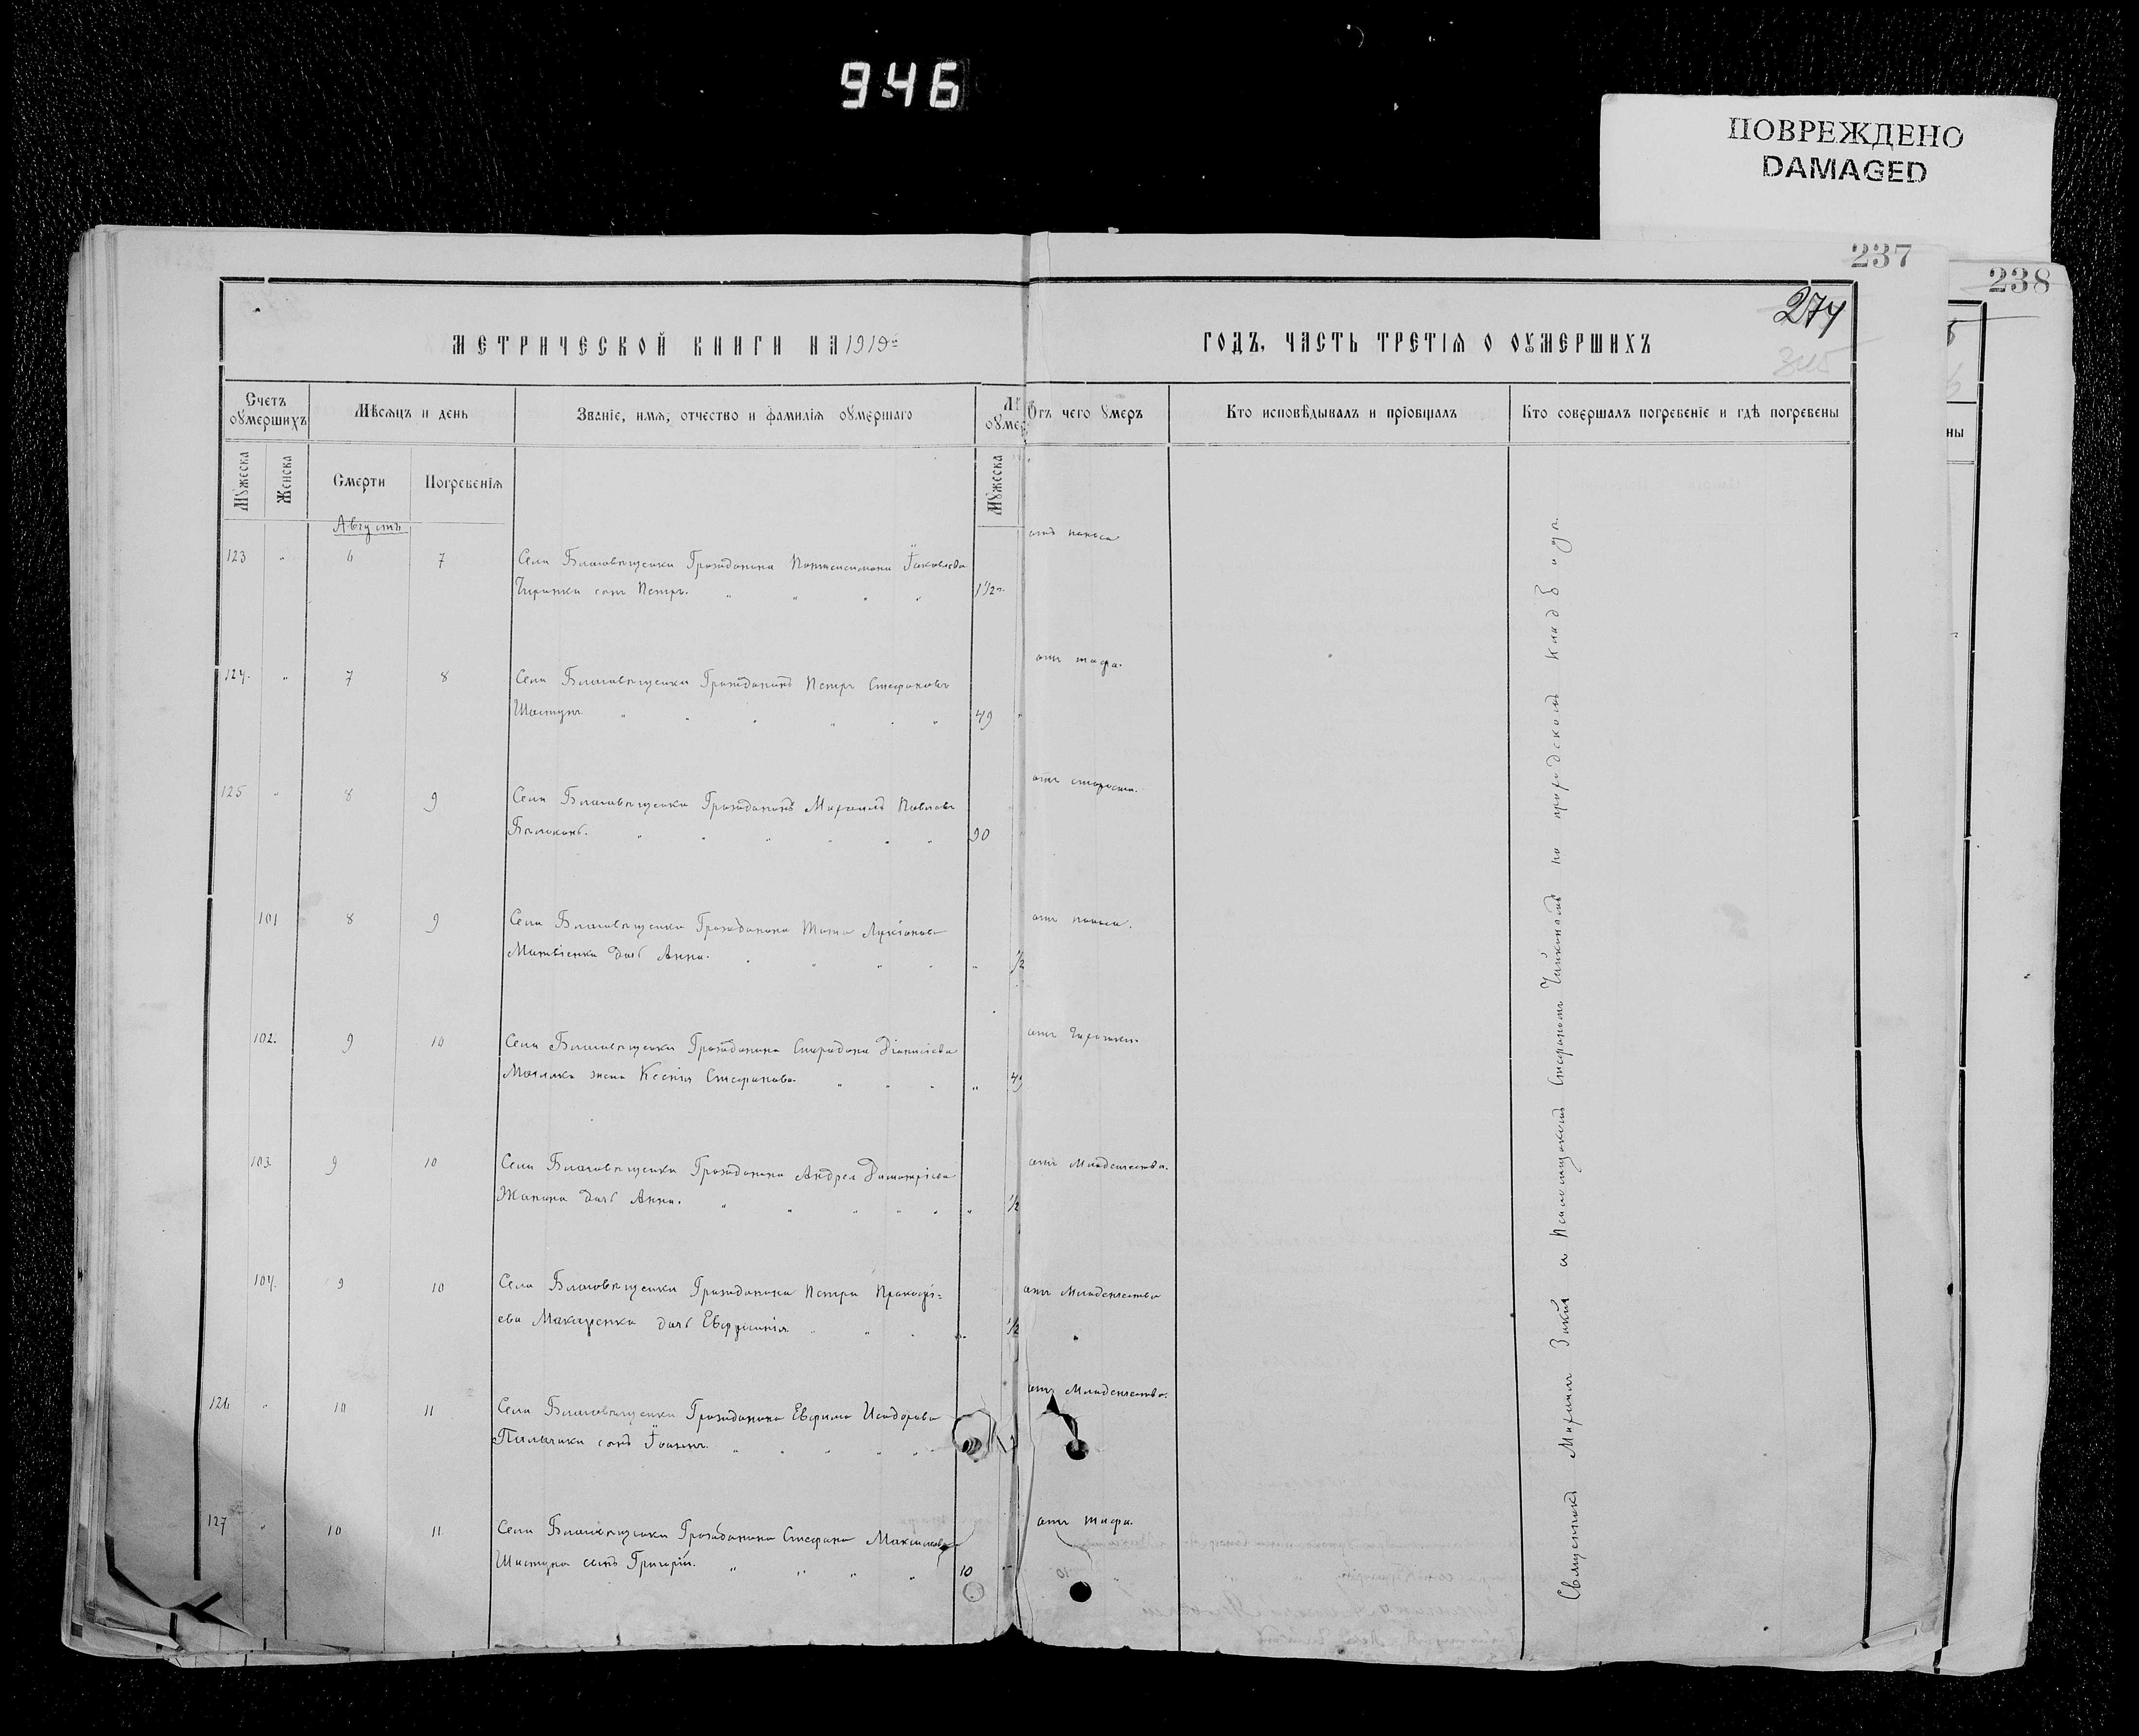 946
ПОВРЕЖДЕНО
DAMAGED
237
238
274
МЕТРИЧЕСКОЙ КНИГИ НА 1919й
ГОДЪ, ЧАСТЬ ТРЕТІЯ О ОУМЕРШИХЪ
Счетъ оумершихъ
Мѣсяцъ и день
Званіе, имя, отчество и фамилія оумершаго
Лѣ
оумер
Отъ чего умеръ
Кто исповѣдывалъ и пріобщалъ
Кто совершалъ погребеніе и гдѣ погребены
ны
Мужеска
Женска
Смерти
Погребенія
Мужеска
Августъ
123 " 6 7 Села Благовѣщенки Гражданина Пантелеимона Іаковлева
сынъ Петръ. " " " " 1 1/2 г.
отъ поноса
124. " 7 8 Села Благовѣщенки Гражданинъ Петръ Стефановъ
Шастунъ. " " " " " " 49 "
отъ тифа.
125 " 8 9 Села Благовѣщенки Гражданинъ Михаилъ Павловъ
" " " " " " 90
отъ старости.
101 8 9 Села Благовѣщенки Гражданина Лукіанова
Матвіенка дочь Анна. " " " " " 1/2
отъ поноса.
102. 9 10 Села Благовѣщенки Гражданина Спиридона Діонисіева
жена Ксенія Стефанова. " " " " 49
отъ
103. 9 10 Села Благовѣщенки Гражданина Андрея Димитріева
дочь Анна. " " " " " " 1/2
отъ младенчества.
104. 9 10 Села Благовѣщенки Гражданина Петра Прокофі=
ева Макаренка дочь Евфросинія. " " " " 1/2
отъ младенчества
126 " 10 11 Села Благовѣщенки Гражданина Евфима Исидорова
сынъ Іоаннъ. " " " " "
отъ младенчества.
127 " 10 11 Села Благовѣщенки Гражданина Стефана Максимова
Шастуна сынъ Григорій. " " " " 10 "
отъ тифа.
Священникъ Михаилъ и Псаломщикомъ Стефаномъ на приходскомъ